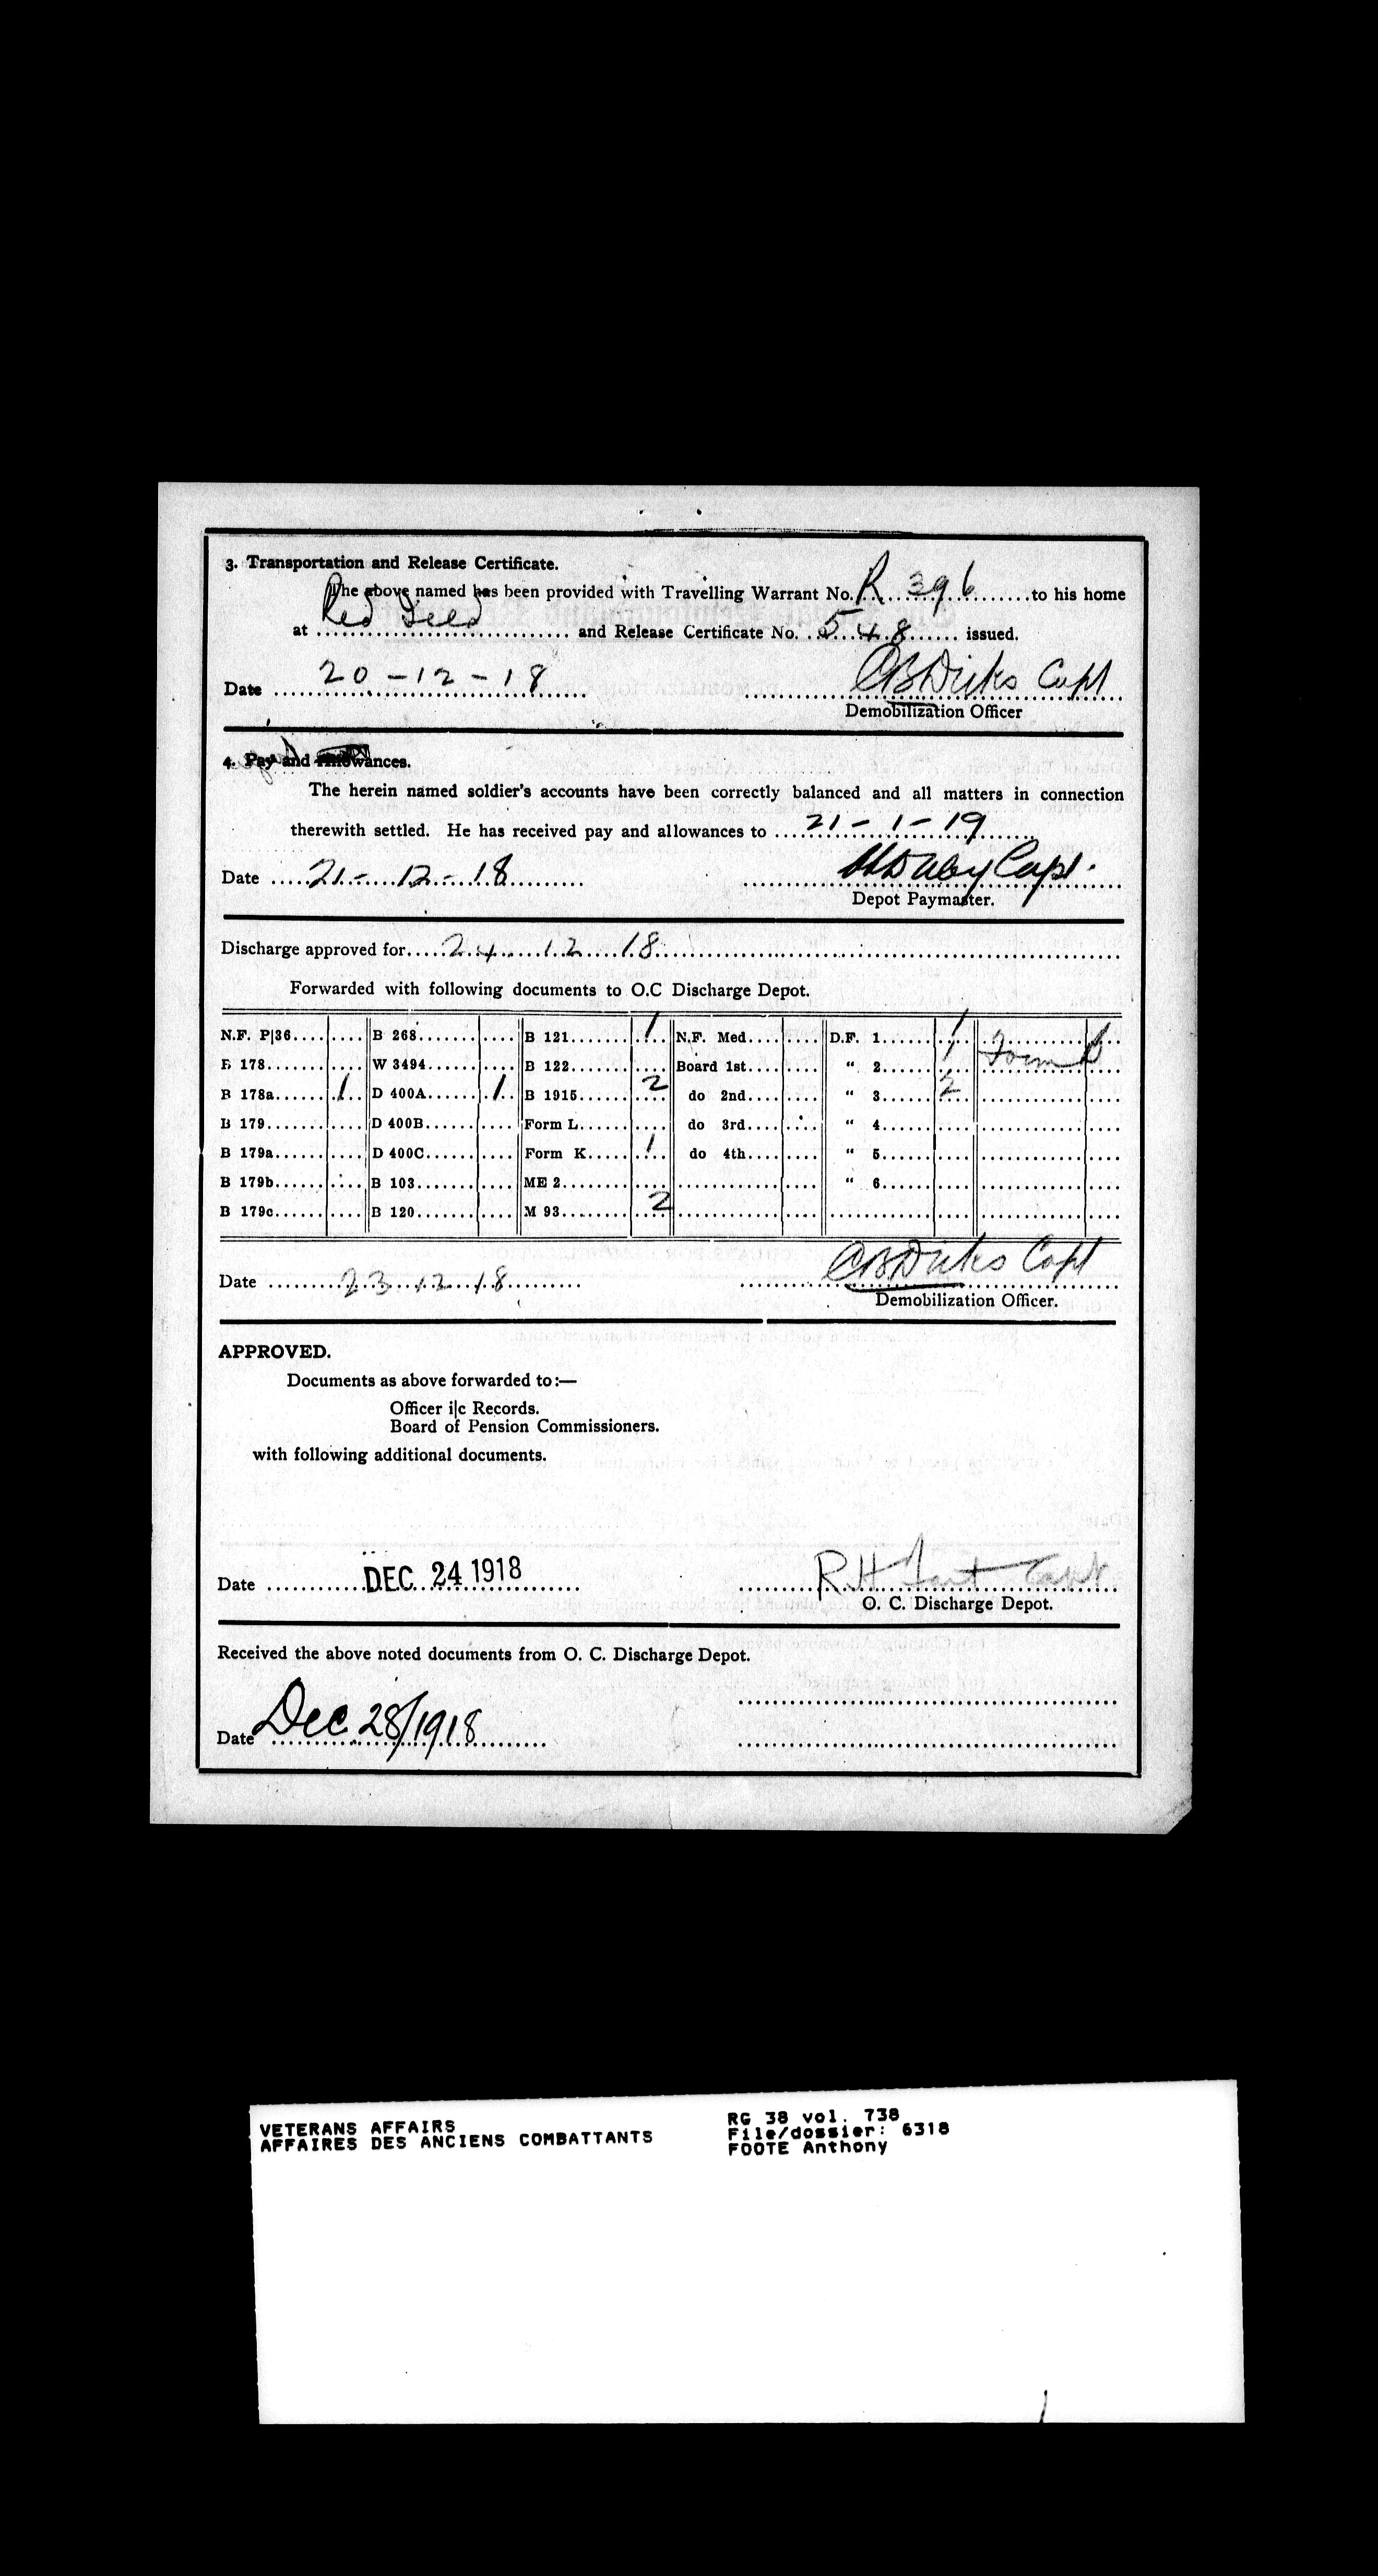 3. Transportation and Release Certificate.
The above named has been provided with Travelling Warrant No. R 396 to his home
at Red and Release Certificate No. 548 issued.
Date 20-12-18 Dicks Capt
Demobilization Officer
4. Pay and Allowances.
The herein named soldier's accounts have been correctly balanced and all matters in connection
therewith settled. He has received pay and allowances to 21-1-19
Date 21-12-18 Capt.
Depot Paymaster.
Discharge approved for 24 12 18
Forwarded with following documents to O.C Discharge Depot.
N.F. P|36 B 268 B 121 1 N.F. Med. D.F. 1 1 Form
B 178 W 3494 B 122 Board 1st " 2 1
B 178a 1 D 400A 1 B 1915 2 do 2nd " 3 2
B 179 D 400B Form L do 3rd " 4
B 179a D 400C Form K 1 do 4th " 5
B 179b B 103 ME 2 " 6
B 179c B 120 M 93 2
Date 23 12 18 Dicks Capt
Demobilization Officer.
APPROVED.
Documents as above forwarded to:—
Officer i|c Records.
Board of Pension Commissioners.
with following additional documents.
Date DEC 24 1918 R.H. Capt
O. C. Discharge Depot.
Received the above noted documents from O. C. Discharge Depot.
Date Dec 28/1918
VETERANS AFFAIRS RG 38 vol. 738
AFFAIRES DES ANCIENS COMBATTANTS File/dossier: 6318
FOOTE Anthony